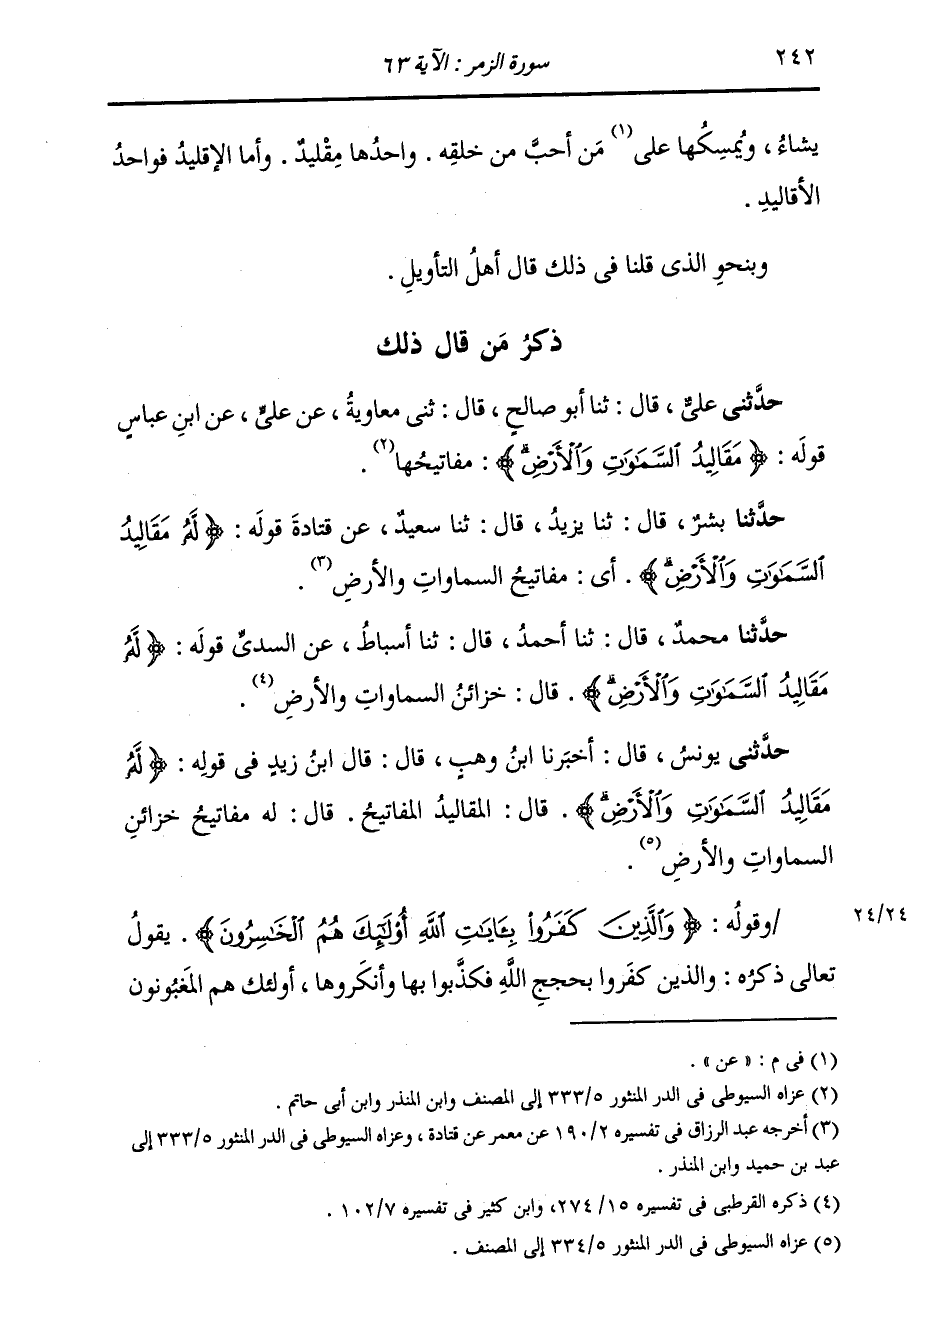 ٢٤٢ سورة الزمر : الآية ٦٣
يشاءُ ، ويُمسِكُها على(١) مَن أحبَّ من خلقِه . واحدُها مِقْليدٌ . وأما الإقليدُ فواحدُ
الأقاليدِ .
وبنحوِ الذى قلنا فى ذلك قال أهلُ التأويلِ .
ذكرُ مَن قال ذلك
حدَّثنى علىٌّ ، قال : ثنا أبو صالحٍ ، قال : ثنى معاويةُ ، عن علىٍّ ، عن ابنِ عباسٍ
قولَه : ﴿ مَقَالِيدُ ٱلسَّمَٰوَٰتِ وَٱلْأَرْضِۗ ﴾ : مفاتيحُها(٢) .
حدَّثنا بشرٌ ، قال : ثنا يزيدُ ، قال : ثنا سعيدٌ ، عن قتادةَ قولَه : ﴿ لَّهُۥ مَقَالِيدُ
ٱلسَّمَٰوَٰتِ وَٱلْأَرْضِۗ ﴾ . أى : مفاتيحُ السماواتِ والأرضِ(٣) .
حدَّثنا محمدٌ ، قال : ثنا أحمدُ ، قال : ثنا أسباطُ ، عن السدىِّ قولَه : ﴿ لَّهُۥ
مَقَالِيدُ ٱلسَّمَٰوَٰتِ وَٱلْأَرْضِۗ ﴾ . قال : خزائنُ السماواتِ والأرضِ(٤) .
حدَّثنى يونسُ ، قال : أخبَرنا ابنُ وهبٍ ، قال : قال ابنُ زيدٍ فى قولِه : ﴿ لَّهُۥ
مَقَالِيدُ ٱلسَّمَٰوَٰتِ وَٱلْأَرْضِۗ ﴾ . قال : المقاليدُ المفاتيحُ . قال : له مفاتيحُ خزائنِ
السماواتِ والأرضِ(٥) .
٢٤/٢٤ /وقولُه : ﴿ وَٱلَّذِينَ كَفَرُوا۟ بِـَٔايَٰتِ ٱللَّهِ أُو۟لَٰٓئِكَ هُمُ ٱلْخَٰسِرُونَ ﴾ . يقولُ
تعالى ذكرُه : والذين كفَروا بحججِ اللَّهِ فكذَّبوا بها وأنكَروها ، أولئك هم المَغبُونون
(١) فى م : « عن » .
(٢) عزاه السيوطى فى الدر المنثور ٣٣٣/٥ إلى المصنف وابن المنذر وابن أبى حاتم .
(٣) أخرجه عبد الرزاق فى تفسيره ١٩٠/٢ عن معمر عن قتادة ، وعزاه السيوطى فى الدر المنثور ٣٣٣/٥ إلى
عبد بن حميد وابن المنذر .
(٤) ذكره القرطبى فى تفسيره ٢٧٤/١٥، وابن كثير فى تفسيره ١٠٢/٧ .
(٥) عزاه السيوطى فى الدر المنثور ٣٣٤/٥ إلى المصنف .